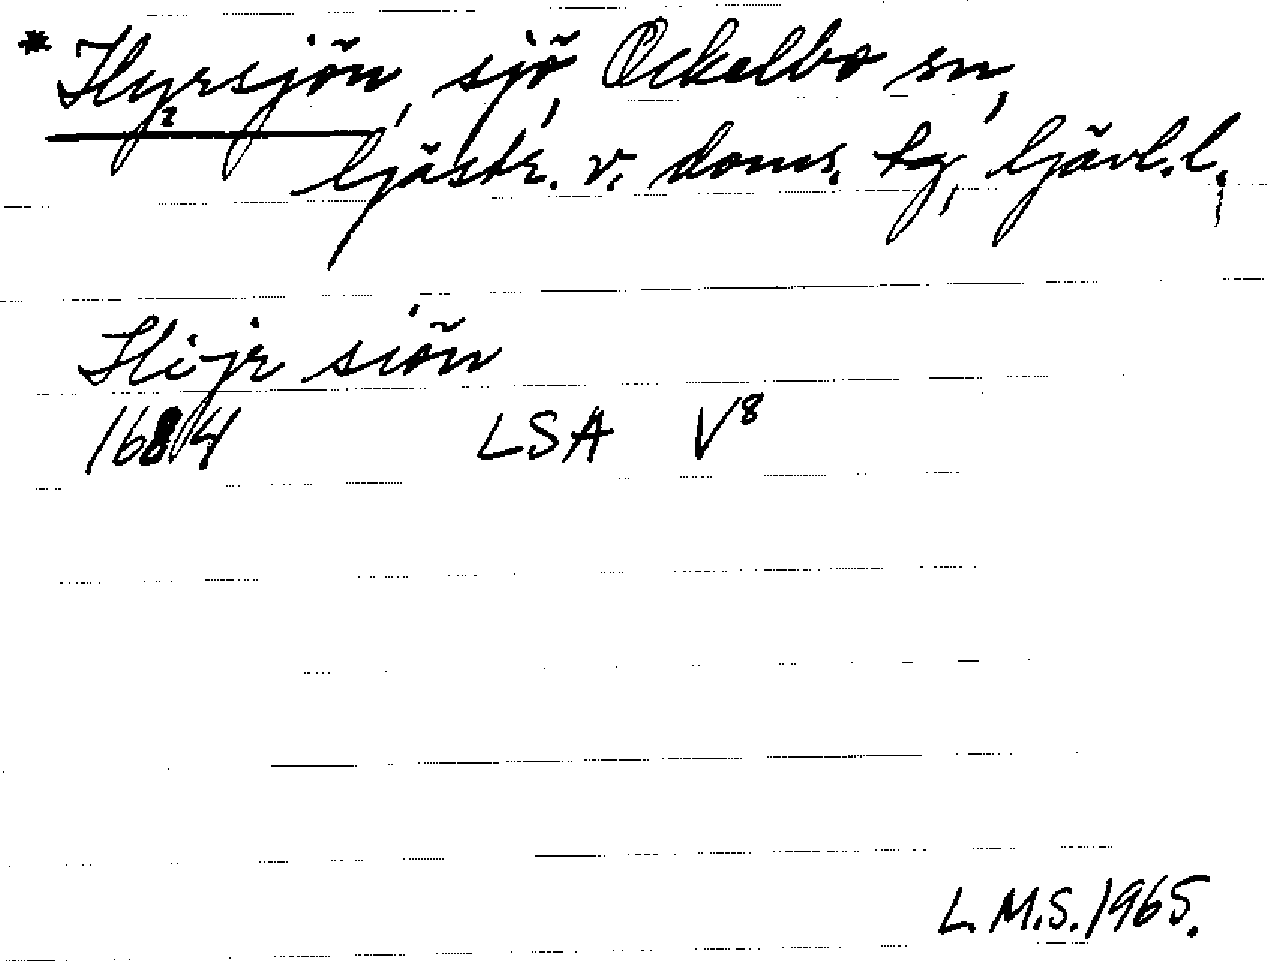 *Hyrsjön, sjö, Ockelbo sn,
Gästr. v. doms. tg, Gävl. l.
Hijr siön
1684 LSA V8
L.M.S. 1965.